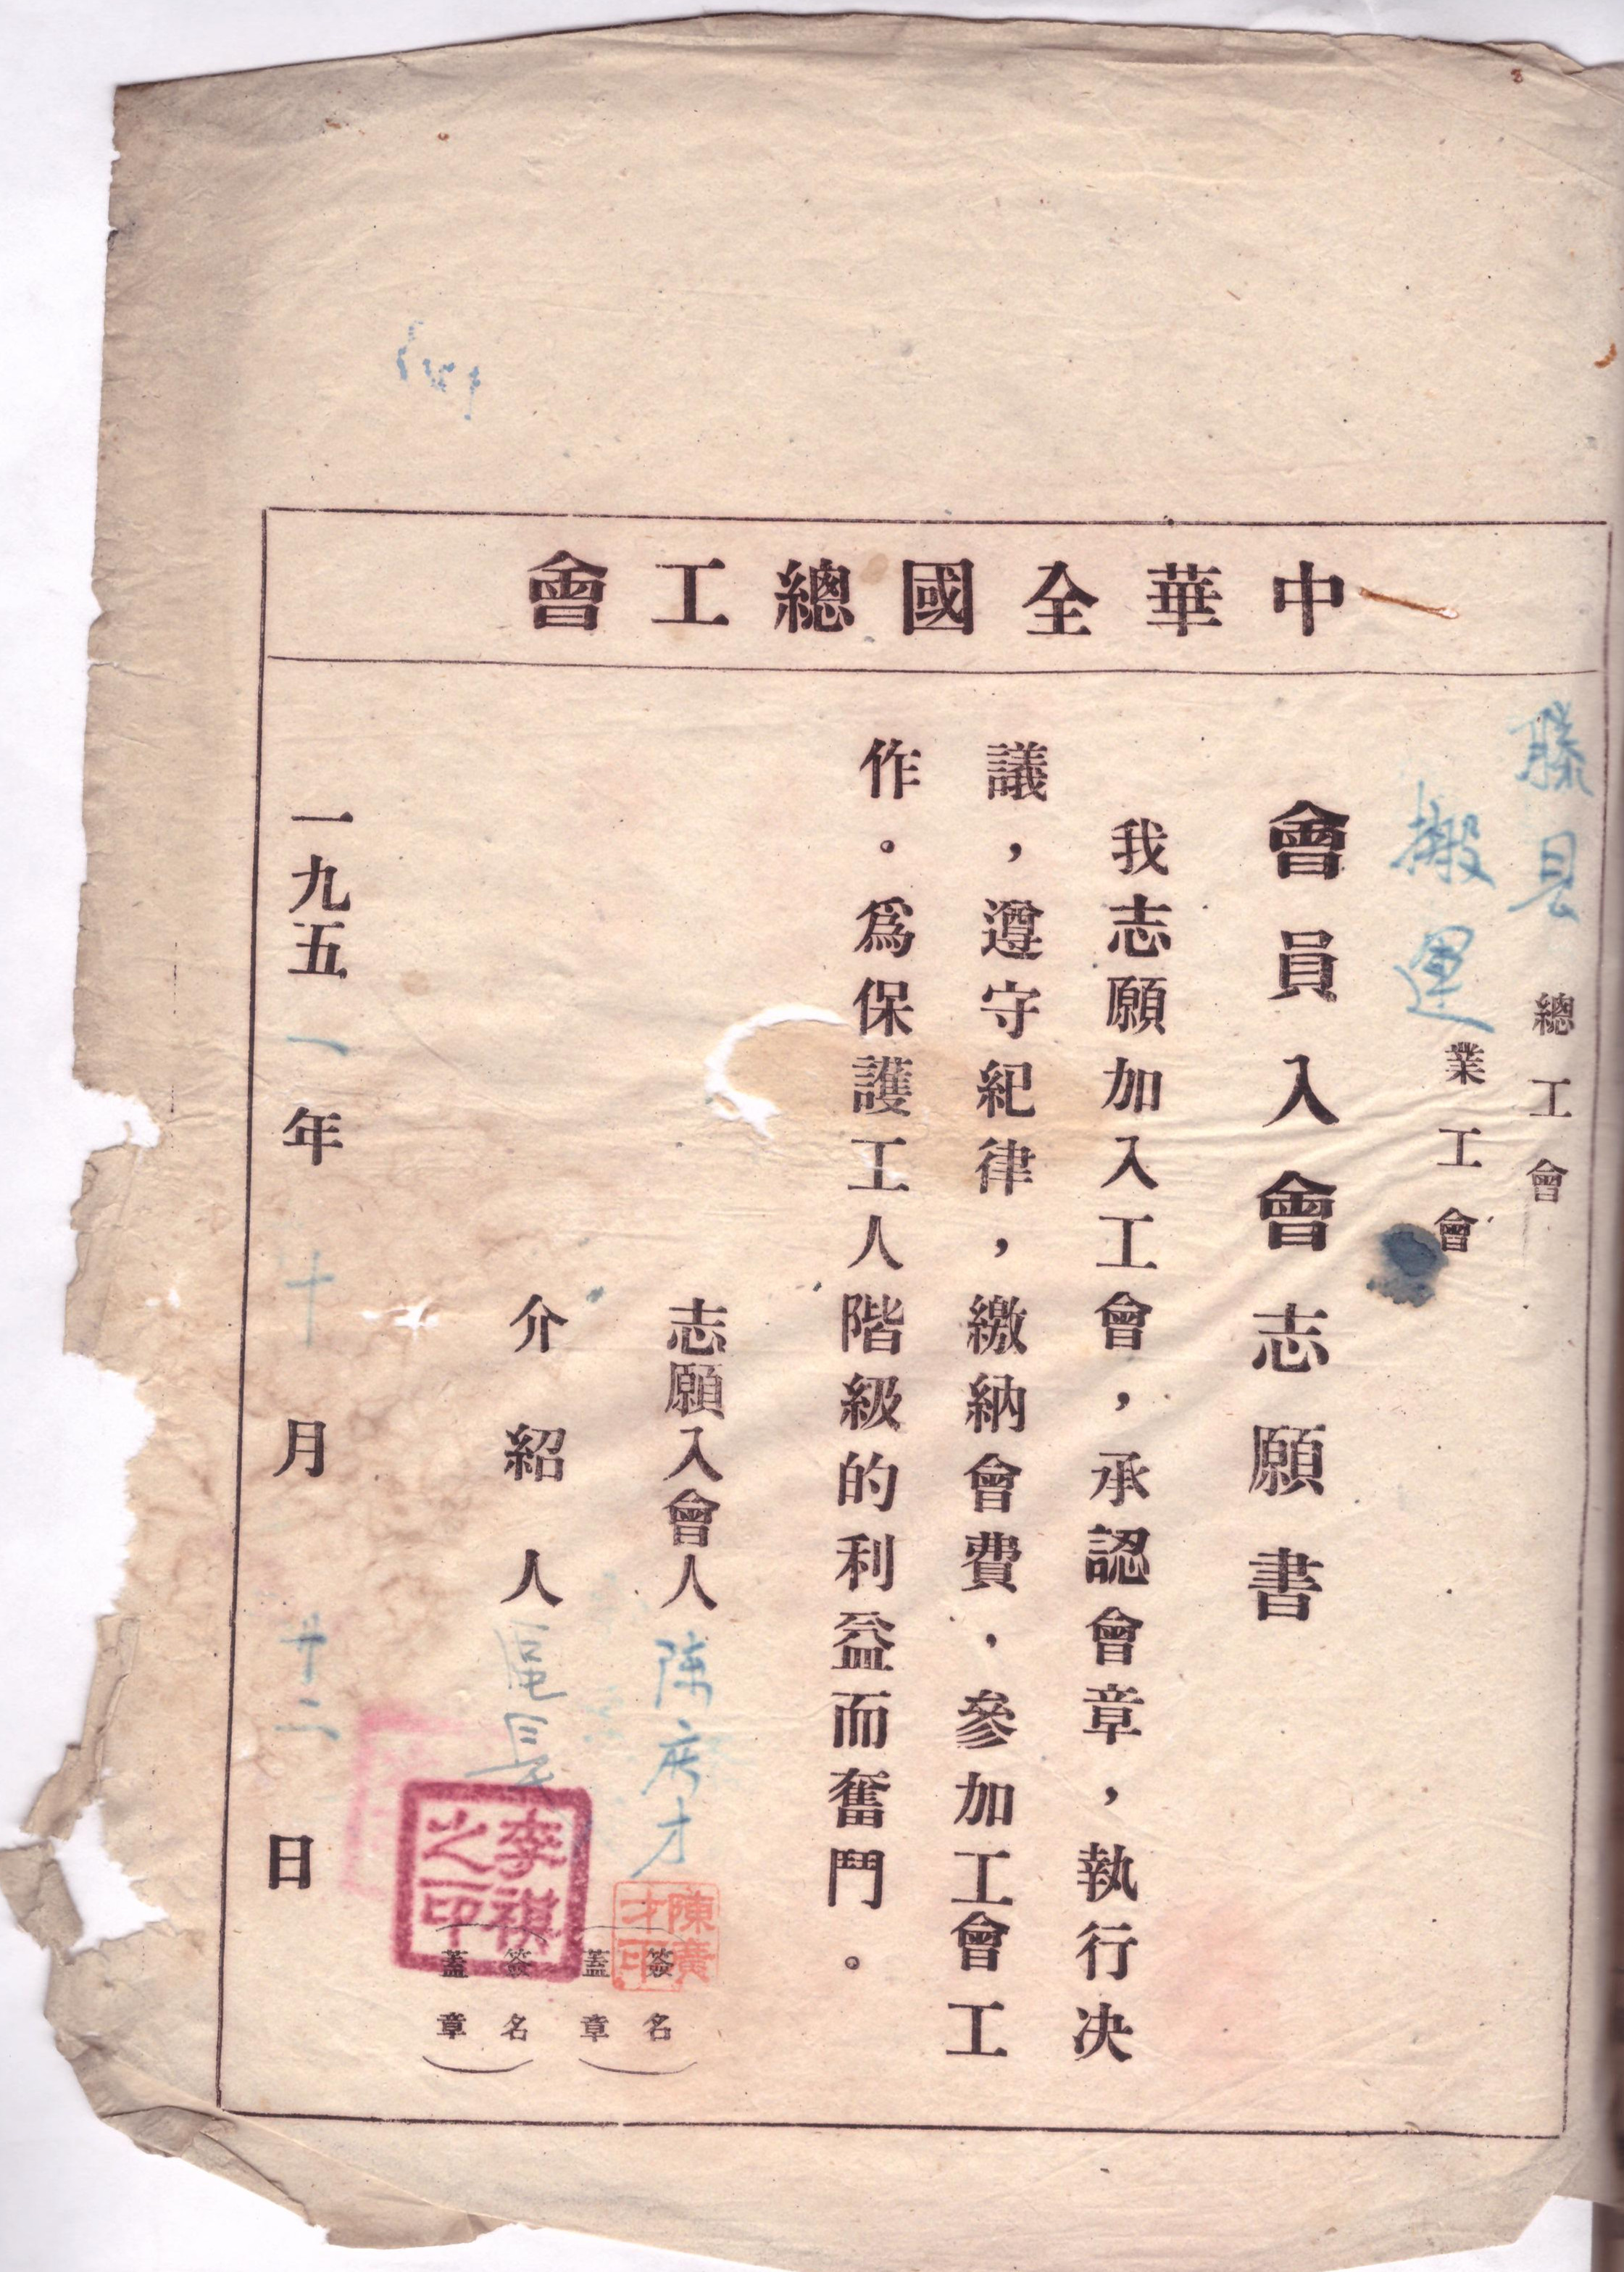 中華全國總工會
滕縣總工會
搬運業工會
會員入會志願書
我志願加入工會，承認會章，執行决
議，遵守紀律，繳納會費，參加工會工
作。為保護工人階級的利益而奮鬥。
志願入會人 陳广才（簽名蓋章）
陳廣才印
介紹人（簽名蓋章）
李祺之印
一九五一年十月廿二日